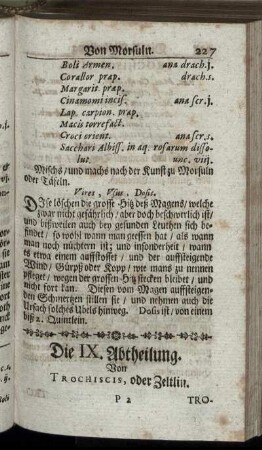 Von Morsuln. 227
Boli Armen. ana drach.j.
Corallor præp. drach.s.
Margarit. præp.
Cinamomi incis. ana scr.j.
Lap. carpion. præp.
Macis torrefact.
Croci orient. ana scr.s.
Sacchari Albiss. in aq. rosarum disso-
lut. unc. viij.
Mischs / und machs nach der Kunst zu Morsuln
oder Täfeln.
Vires, Usus, Dosis.
Diese löschen die grosse Hitz deß Magens / welche
zwar nicht gefährlich / aber doch beschwerlich ist /
und bißweilen auch bey gesunden Leuthen sich be-
findet / so wohl wann man gessen hat / als wann
man noch nüchtern ist; und insonderheit / wann
es etwa einem auffstosset / und der auffsteigende
Wind / Gürpß oder Kopp / wie mans zu nennen
pfleget / wegen der grossen Hitz stecken bleibet / und
nicht fort kan. Diesen vom Magen auffsteigen-
den Schmertzen stillen sie / und nehmen auch die
Ursach solches Ubels hinweg. Dosis ist / von einem
biß 2. Quintlein.
Die IX. Abtheilung.
Von
TROCHISCIS, oder Zeltlin.
P 2 TRO-